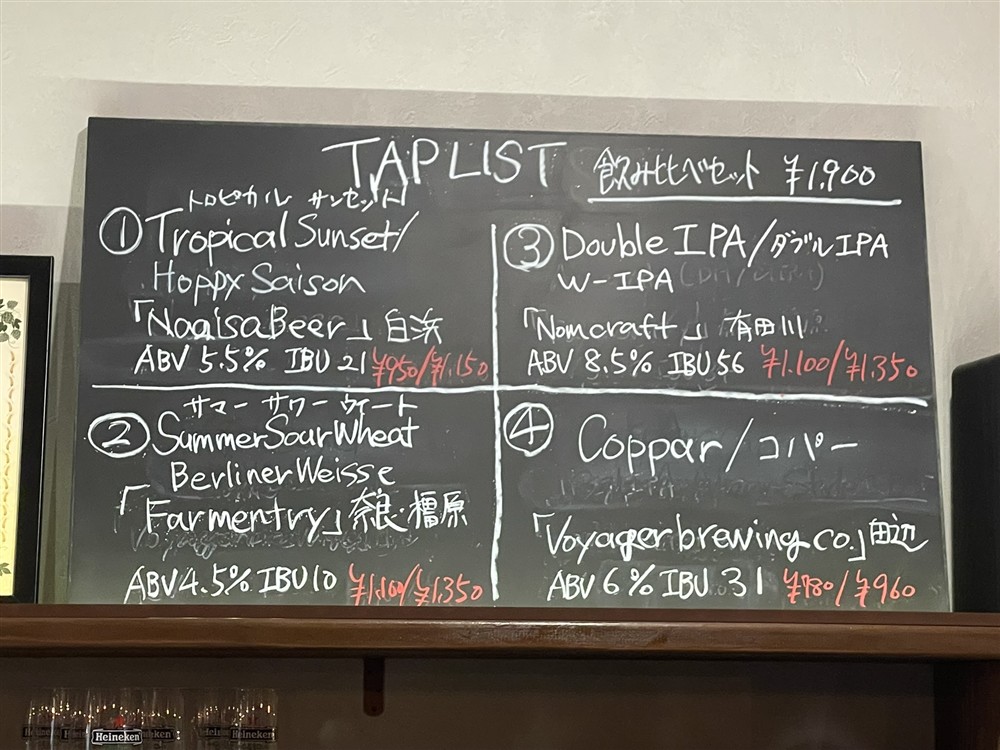 TAP LIST
飲み比べセット ¥1,900
トロピカル サンセット/
① Tropical Sunset/
Hoppy Saison
「Nagisa Beer」白浜
ABV 5.5% IBU 21 ¥950/¥1.150
サマー サワー ウィート
② Summer Sour Wheat
Berliner Weisse
「Farmentry」奈良・橿原
ABV 4.5% IBU 10 ¥1,100/¥1,350
③ Double IPA/ダブルIPA
W-IPA
「Nomcraft」有田川
ABV 8.5% IBU 56 ¥1.100/¥1.350
④ Coppar/コパー
「Voyager brewing co.」田辺
ABV 6% IBU 31 ¥780/¥960
Heineken
Heineken